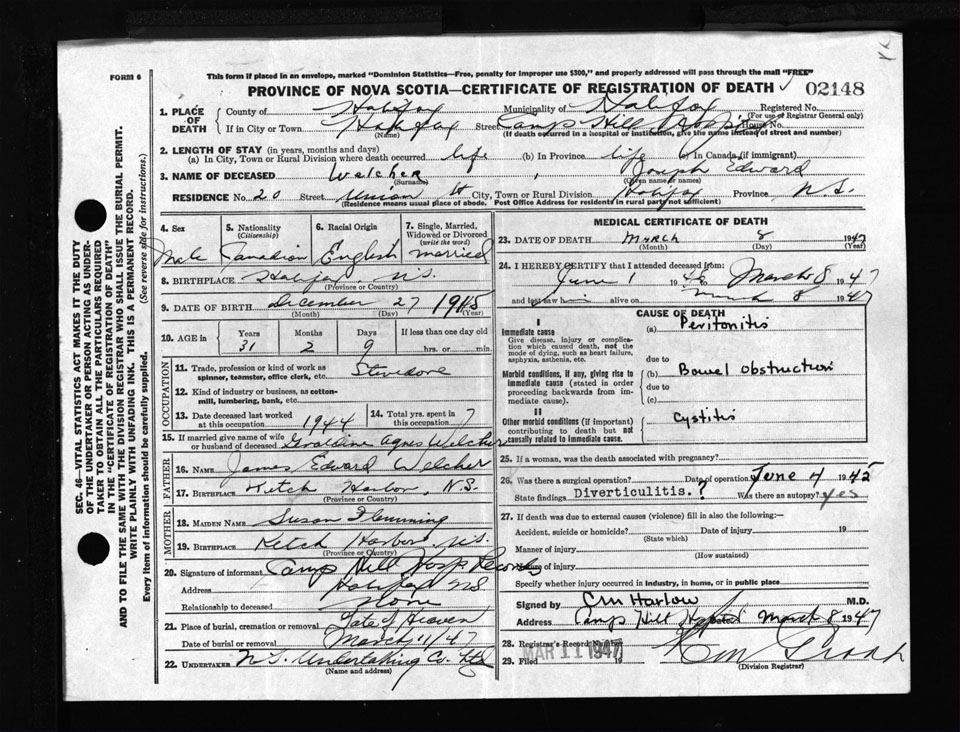 FORM 6
This form if placed in an envelope, marked "Dominion Statistics—Free, penalty for improper use $300," and properly addressed will pass through the mail "FREE"
PROVINCE OF NOVA SCOTIA—CERTIFICATE OF REGISTRATION OF DEATH 02148
1. PLACE OF DEATH County of Halifax Municipality of Halifax Registered No. (For use of Registrar General only)
If in City or Town Halifax (Name) Street Camp Hill Hospital House No.
(If death occurred in a hospital or institution, give the name instead of street and number)
2. LENGTH OF STAY (in years, months and days)
(a) In City, Town or Rural Division where death occurred life (b) In Province life (c) In Canada (if immigrant)
3. NAME OF DECEASED Welcher (Surname) Joseph Edward (Given name or names)
RESIDENCE No. 20 Street Union St City, Town or Rural Division Halifax Province N.S.
(Residence means usual place of abode. Post Office Address for residents in rural parts not sufficient)
SEC. 46—VITAL STATISTICS ACT MAKES IT THE DUTY
OF THE UNDERTAKER OR PERSON ACTING AS UNDER-
TAKER TO OBTAIN ALL THE PARTICULARS REQUIRED
IN THE "CERTIFICATE OF REGISTRATION OF DEATH"
AND TO FILE THE SAME WITH THE DIVISION REGISTRAR WHO SHALL ISSUE THE BURIAL PERMIT.
WRITE PLAINLY WITH UNFADING INK. THIS IS A PERMANENT RECORD.
Every item of information should be carefully supplied. (See reverse side for instructions.)
4. Sex 5. Nationality (Citizenship) 6. Racial Origin 7. Single, Married, Widowed or Divorced (write the word)
Male Canadian English married
8. BIRTHPLACE Halifax, N.S.
(Province or Country)
9. DATE OF BIRTH December 27 1915
(Month) (Day) (Year)
10. AGE in Years Months Days If less than one day old
31 2 9 hrs. or min.
OCCUPATION
11. Trade, profession or kind of work as spinner, teamster, office clerk, etc. Stevedore
12. Kind of industry or business, as cotton-mill, lumbering, bank, etc.
13. Date deceased last worked at this occupation 1944 14. Total yrs. spent in 7
15. If married give name of wife or husband of deceased Geraldine Agnes Welcher
FATHER
16. NAME James Edward Welcher
17. BIRTHPLACE Ketch Harbor, N.S.
(Province or Country)
MOTHER
18. MAIDEN NAME Susan Flemming
19. BIRTHPLACE Ketch Harbor N.S.
(Province or Country)
20. Signature of informant Camp Hill Hosp Records
Address Halifax N.S.
Relationship to deceased None
21. Place of burial, cremation or removal Gate of Heaven
Date of burial or removal March 11/47
22. UNDERTAKER N.S. Undertaking Co. Ltd
(Name and address)
MEDICAL CERTIFICATE OF DEATH
23. DATE OF DEATH March 8 1947
(Month) (Day) (Year)
24. I HEREBY CERTIFY that I attended deceased from:
June 1 19 46 to March 8 1947
and last saw him alive on March 8 1947
CAUSE OF DEATH
I
Immediate cause (a) Peritonitis
Give disease, injury or complication which caused death, not the mode of dying, such as heart failure, asphyxia, asthenia, etc.
due to
Morbid conditions, if any, giving rise to immediate cause (stated in order proceeding backwards from immediate cause). (b) Bowel obstruction
due to
(c)
II
Other morbid conditions (if important) contributing to death but not causally related to immediate cause. Cystitis
25. If a woman, was the death associated with pregnancy?
26. Was there a surgical operation? Date of operation June 4 1945
State findings Diverticulitis.? Was there an autopsy? yes
27. If death was due to external causes (violence) fill in also the following:
Accident, suicide or homicide? Date of injury 19
(State which)
Manner of injury
(How sustained)
Nature of injury
Specify whether injury occurred in industry, in home, or in public place
Signed by CM Harlow M.D.
Address Camp Hill Hospital March 8 1947
28. Registrar's Record Number
29. Filed MAR 11 1947 19
(Division Registrar)